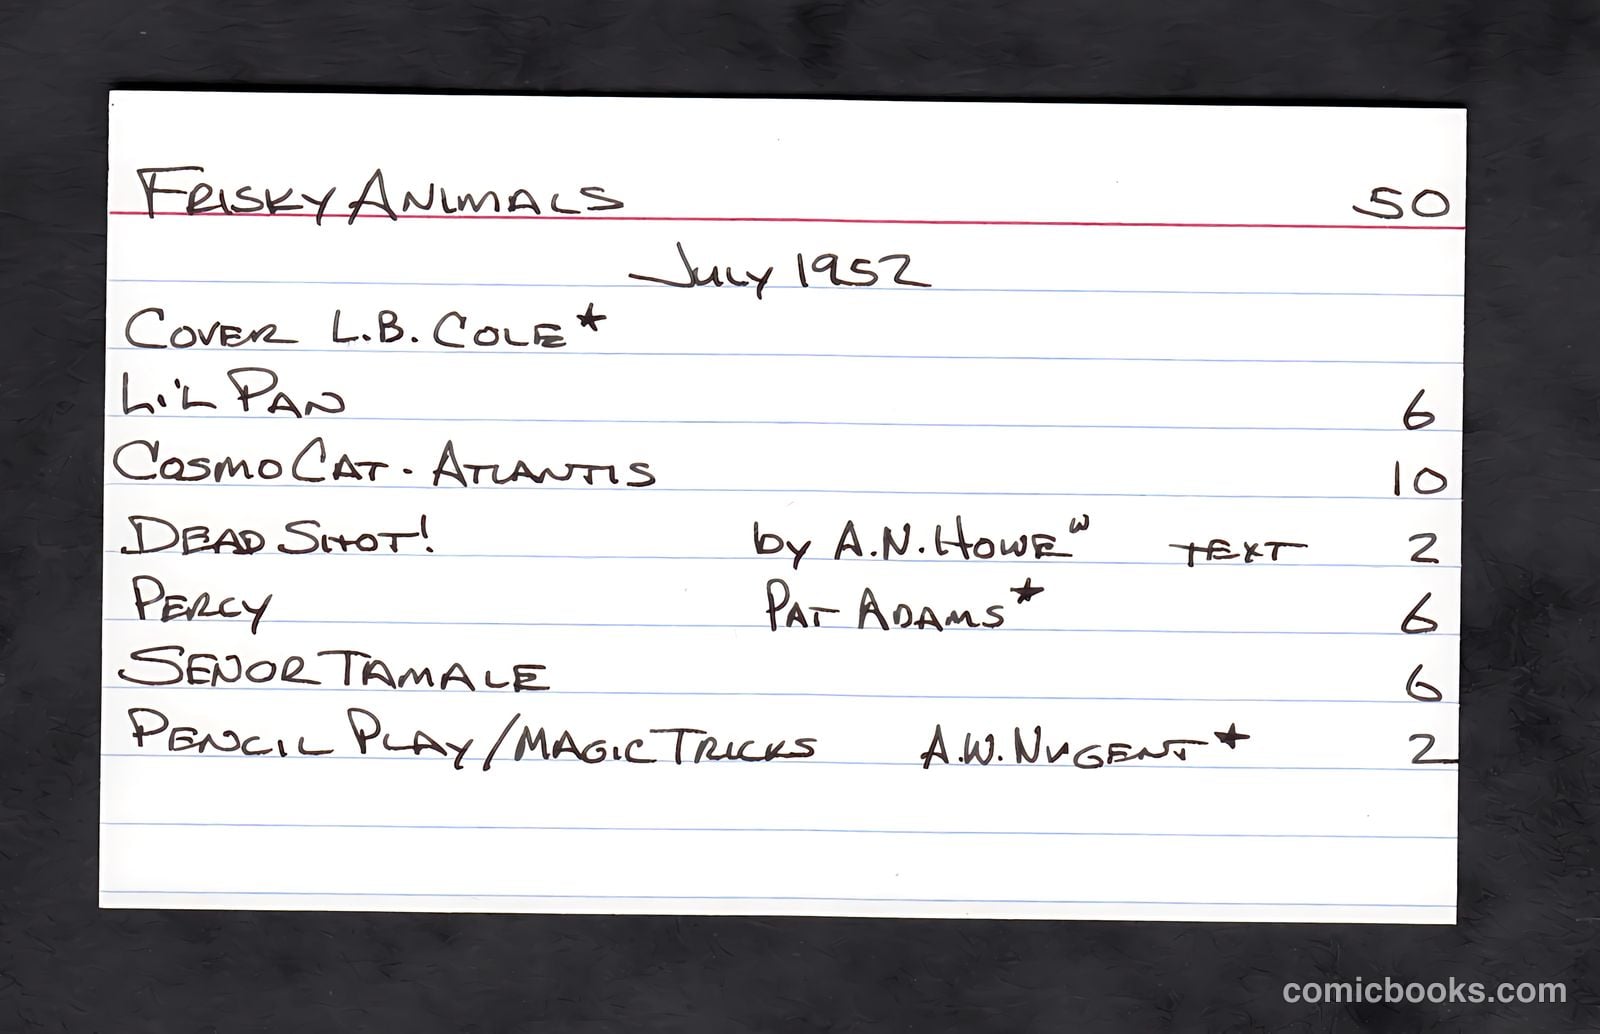 FRISKY ANIMALS 50
JULY 1952
COVER L.B. COLE★
LI'L PAN 6
COSMO CAT - ATLANTIS 10
DEAD SHOT! by A.N. HOWE ʷ TEXT 2
PERCY PAT ADAMS★ 6
SENOR TAMALE 6
PENCIL PLAY/MAGIC TRICKS A.W. NUGENT★ 2
comicbooks.com